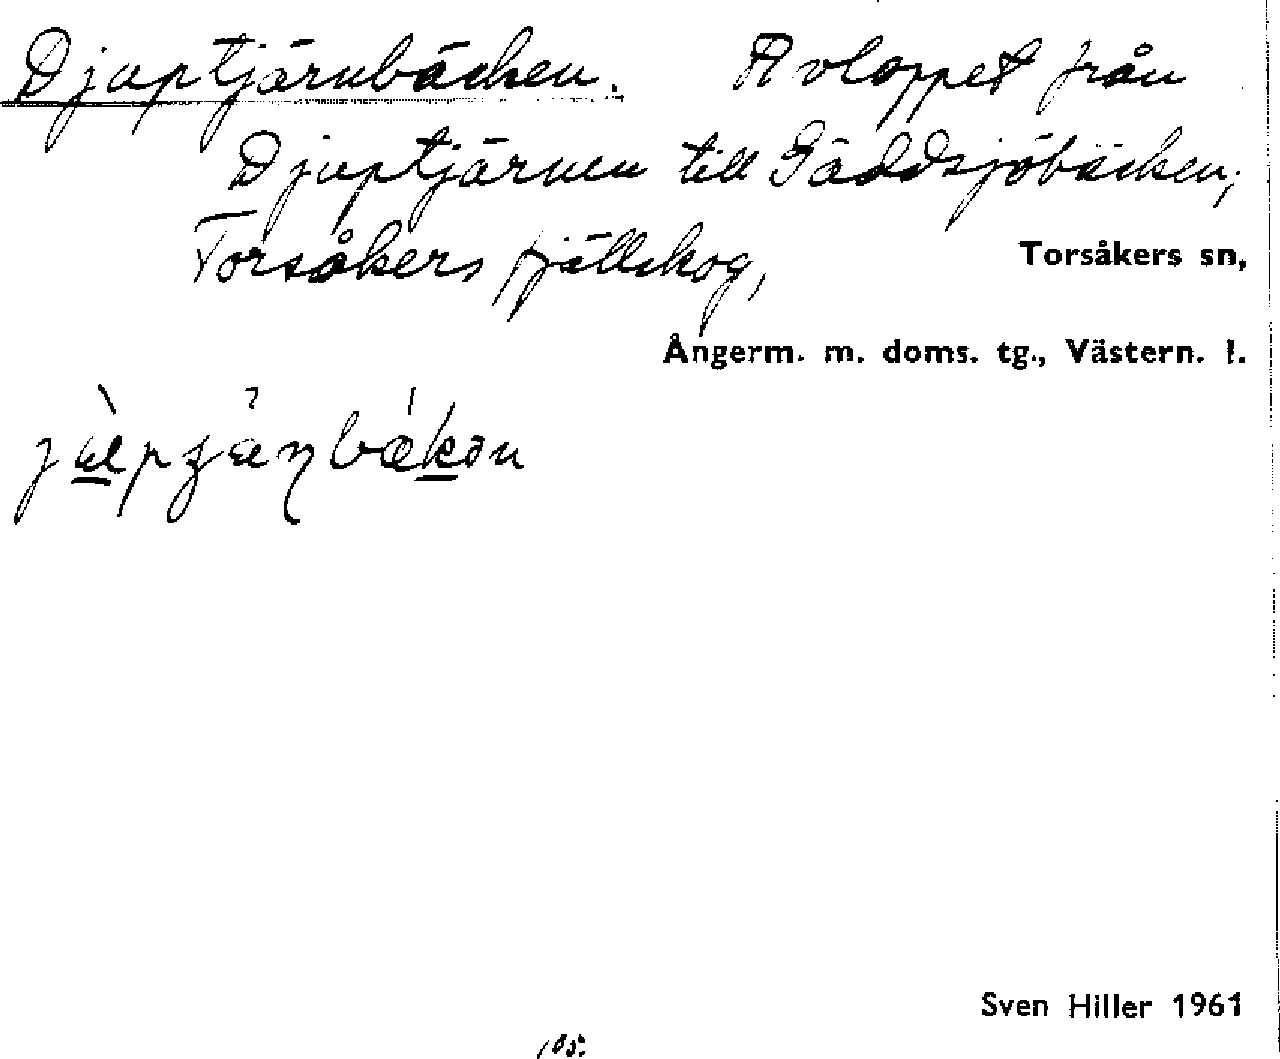 Djuptjärnbäcken. Avloppet från
Djuptjärnen till Gäddsjöbäcken,
Torsåkers fjällskog, Torsåkers sn,
Ångerm. m. doms. tg., Västern. l.
Sven Hiller 1961